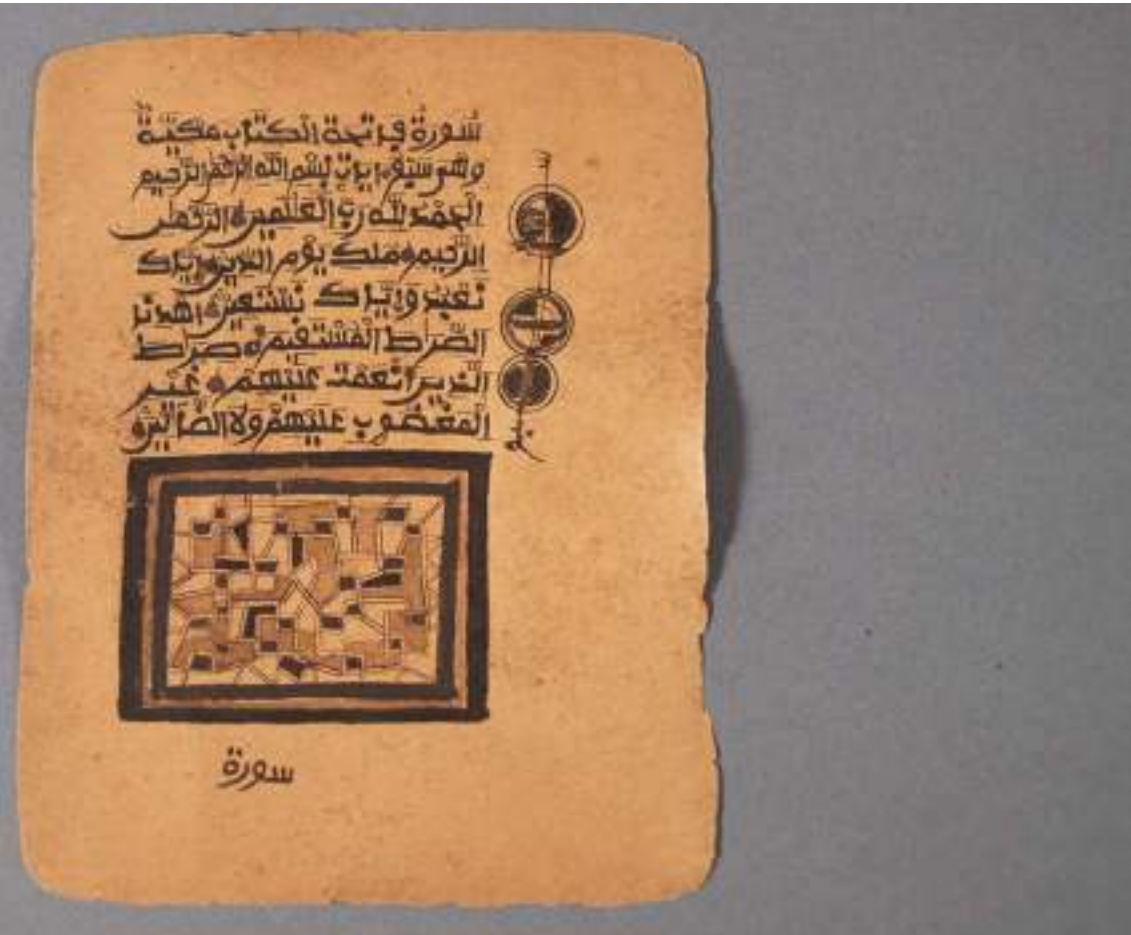 سُورَةُ فَاتِحَةِ الْكِتَابِ مَكِّيَّةٌ
وَهِيَ سَبْعُ ءَايَاتٍ بِسْمِ اللهِ الرَّحْمٰنِ الرَّحِيمِ
الْحَمْدُ لِلهِ رَبِّ الْعٰلَمِينَ الرَّحْمٰنِ
الرَّحِيمِ مَلِكِ يَوْمِ الدِّينِ إِيَّاكَ
نَعْبُدُ وَإِيَّاكَ نَسْتَعِينُ اهْدِنَا
الصِّرَاطَ الْمُسْتَقِيمَ صِرَاطَ
الَّذِينَ أَنْعَمْتَ عَلَيْهِمْ غَيْرِ
الْمَغْضُوبِ عَلَيْهِمْ وَلَا الضَّالِّينَ
سورة